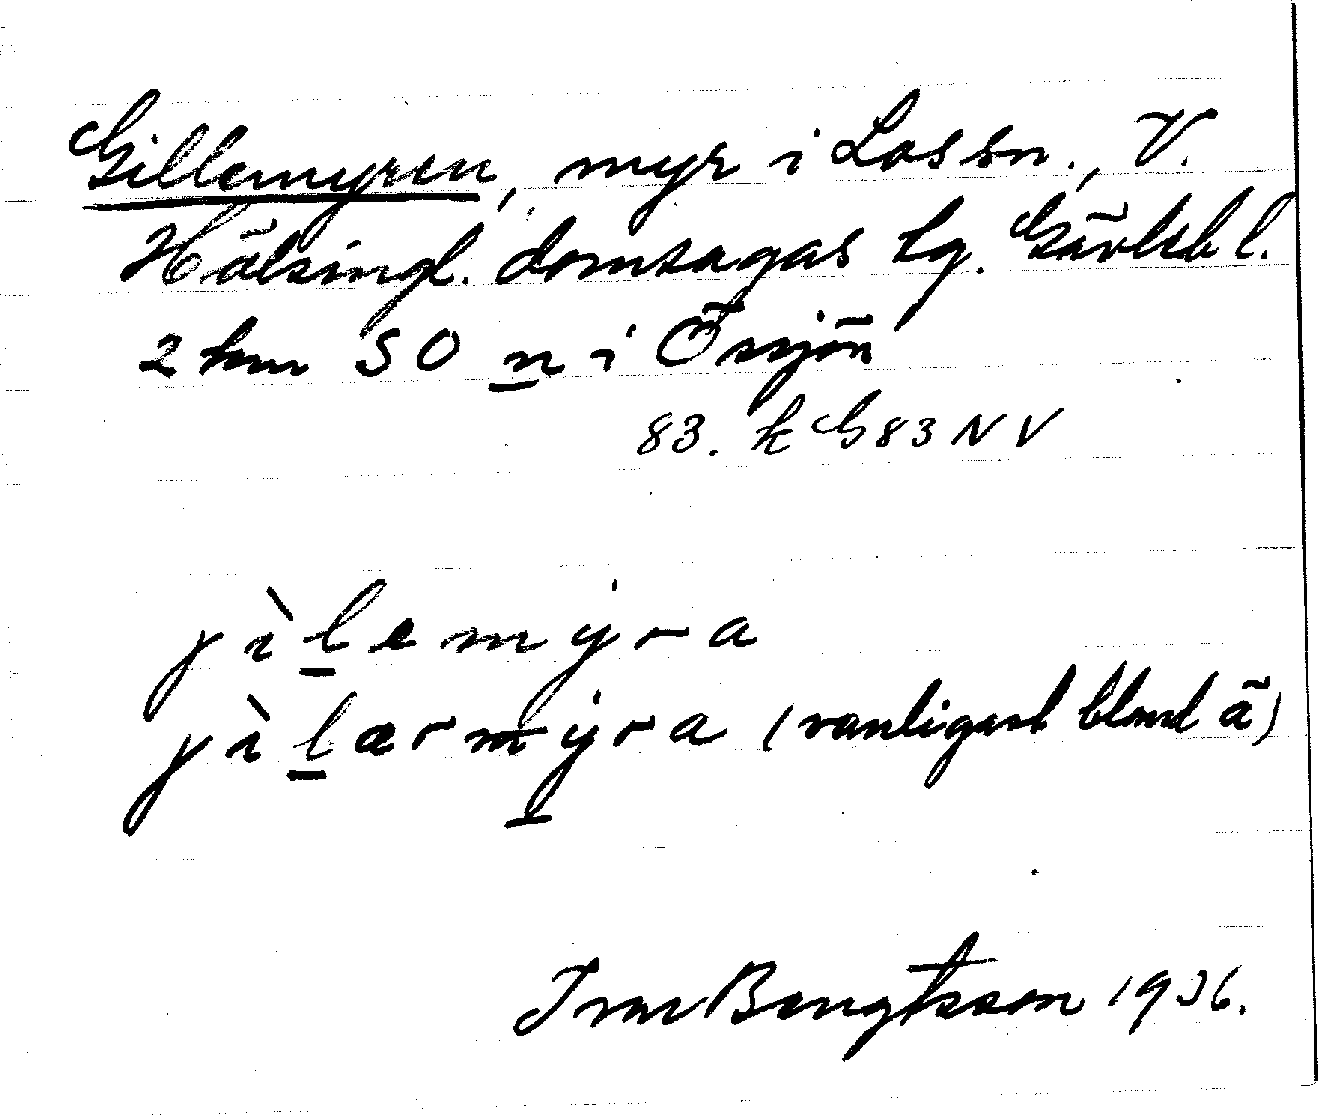 Gillemyren, myr i Los sn., V.
Hälsingl. domsagas tg. Gävleb l.
2 km SO n i Örsjön
83. k G 83 NV
jìlemýra
jìlærmýra (vanligast bland ä)
Ivar Bengtsson 1936.